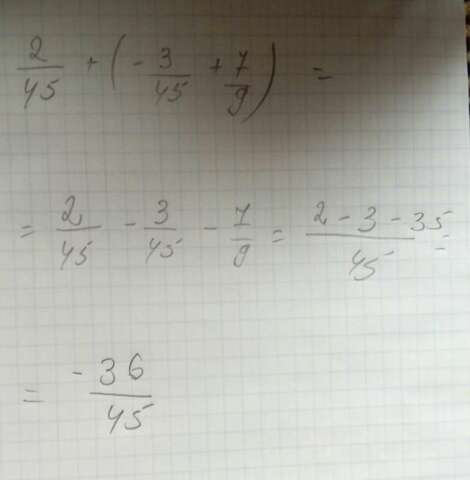 2/45 + (- 3/45 + 7/9) =
= 2/45 - 3/45 - 7/9 = (2 - 3 - 35)/45 =
= -36/45